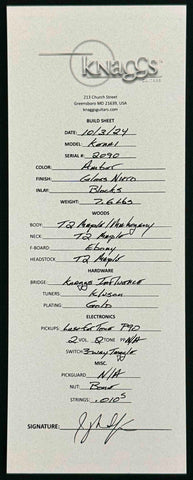 KNAGGS
GUITARS
213 Church Street
Greensboro MD 21639, USA
knaggsguitars.com
BUILD SHEET
DATE: 10/3/24
MODEL: Kenai
SERIAL #: 2090
COLOR: Amber
FINISH: Gloss Nitro
INLAY: Blocks
WEIGHT: 7.6lbs
WOODS
BODY: T2 Maple/Mahogany
NECK: T2 Maple
F-BOARD: Ebony
HEADSTOCK: T2 Maple
HARDWARE
BRIDGE: Knaggs Influence
TUNERS: Kluson
PLATING: Gold
ELECTRONICS
PICKUPS: Tone P90
2 VOL: 2 TONE PP N/A
SWITCH 3way Toggle
MISC.
PICKGUARD: N/A
NUT: Bone
STRINGS: .010s
SIGNATURE: